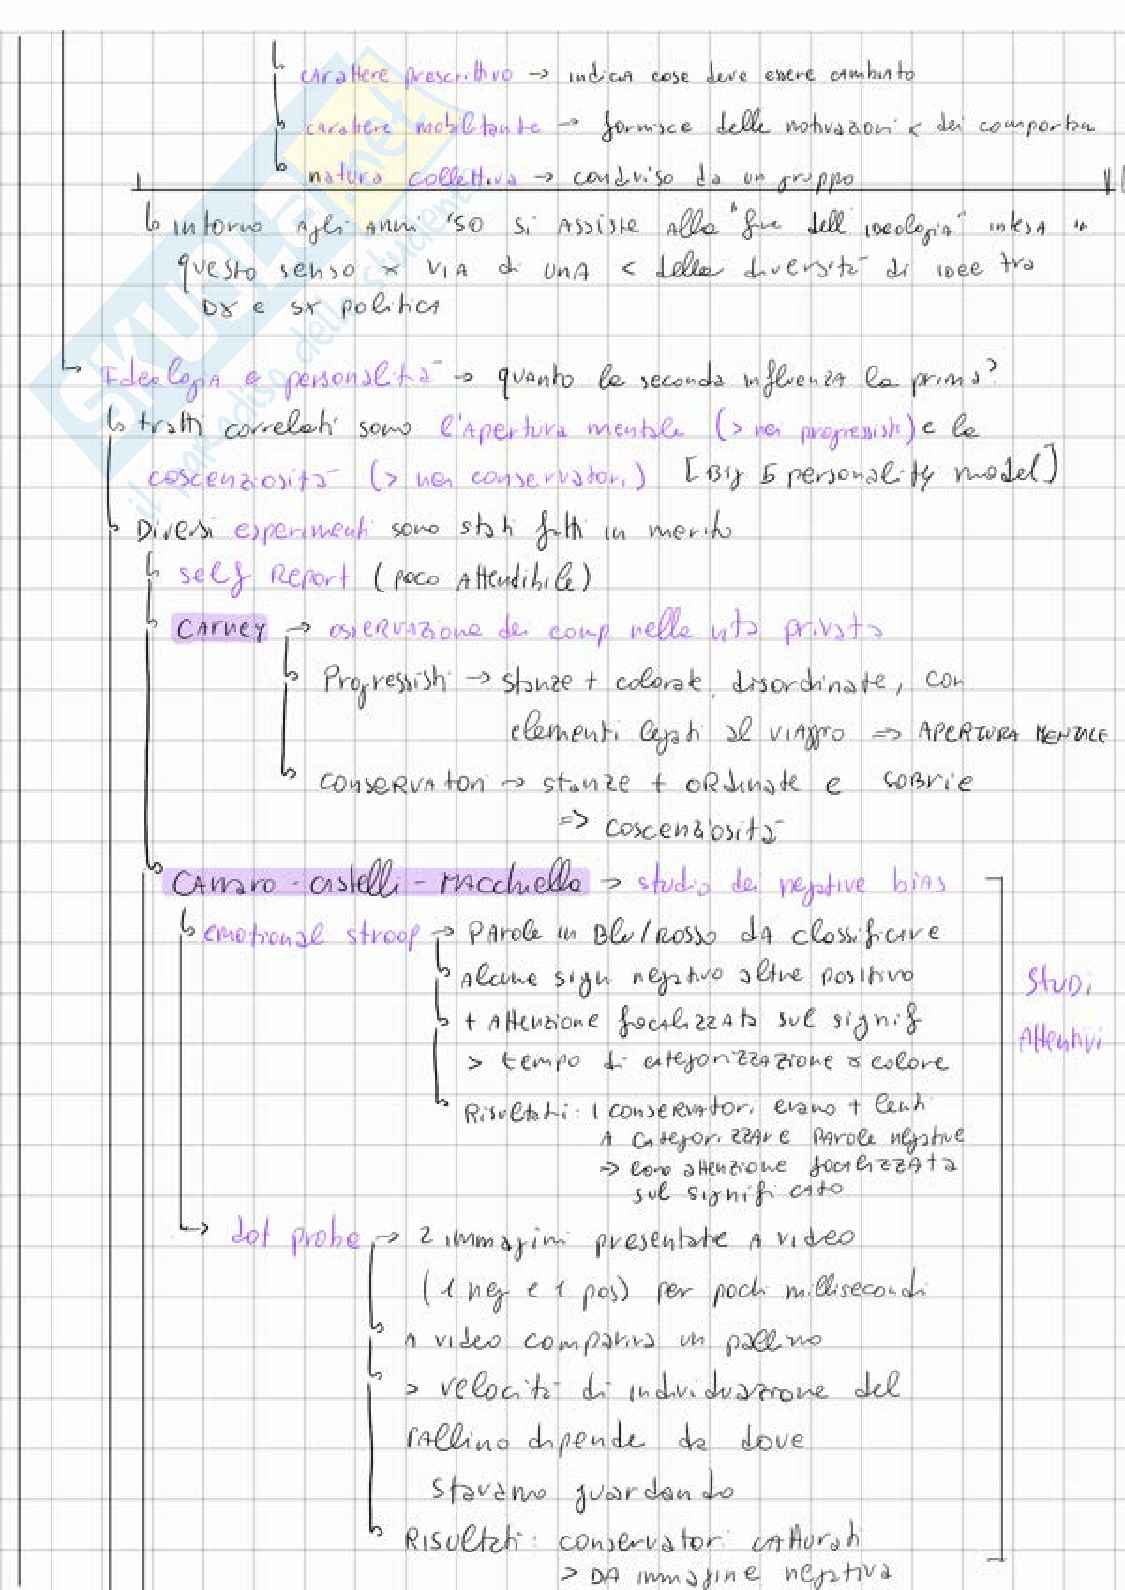 carattere prescrittivo → indica cose deve essere cambiato
carattere mobilitante → fornisce delle motivazioni x dei comporta
natura collettiva → condiviso da un gruppo
intorno Agli Anni '50 si Assiste Alla "fine dell'ideologia" intesA in
questo senso x VIA di UNA < delle diversità di idee tra
DX e SX politica
IdeologiA e personalità → quanto la seconda influenzA la prima?
tratti correlati sono l'Apertura mentale (> nei progressisti) e la
coscenziosità (> nei conservatori) [Big 5 personality model]
Diversi esperimenti sono stati fatti in merito
self Report (poco Attendibile)
CARNEY → osservazione dei comp nella vita privata
Progressisti → stanze + colorate, disordinate, con
elementi legati al viaggio => APERTURA MENTALE
conseRvAtori → stanze + oRdinate e sobrie
=> coscenziosità
CAnaro - castelli - MAcchiello → studio dei negative biAs
emotional stroop → PArole in Blu/Rosso dA classificare
Alcune sign negativo altre positivo
+ Attenzione focalizzAta sul signif
> tempo di categorizzazione x colore
Risultati: i conservatori erano + lenti
A categorizzare parole negative
=> loro attenzione focalizzAta
sul significato
dot probe → 2 immagini presentate A video
(1 neg e 1 pos) per pochi millisecondi
A video compariva un pallino
> velocità di individuazione del
pAllino dipende da dove
stavamo guardando
RISultati: conservatori cAtturati
> DA immagine negativa
Studi
Attentivi
SKUOLA.net
il paradiso dello studente